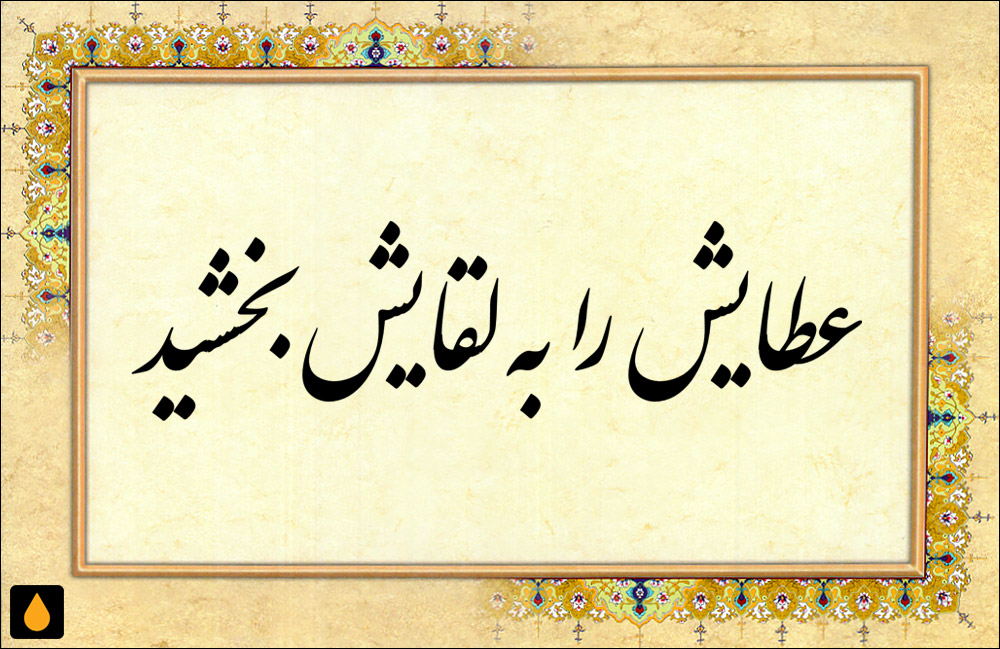 عطایش را به لقایش بخشید